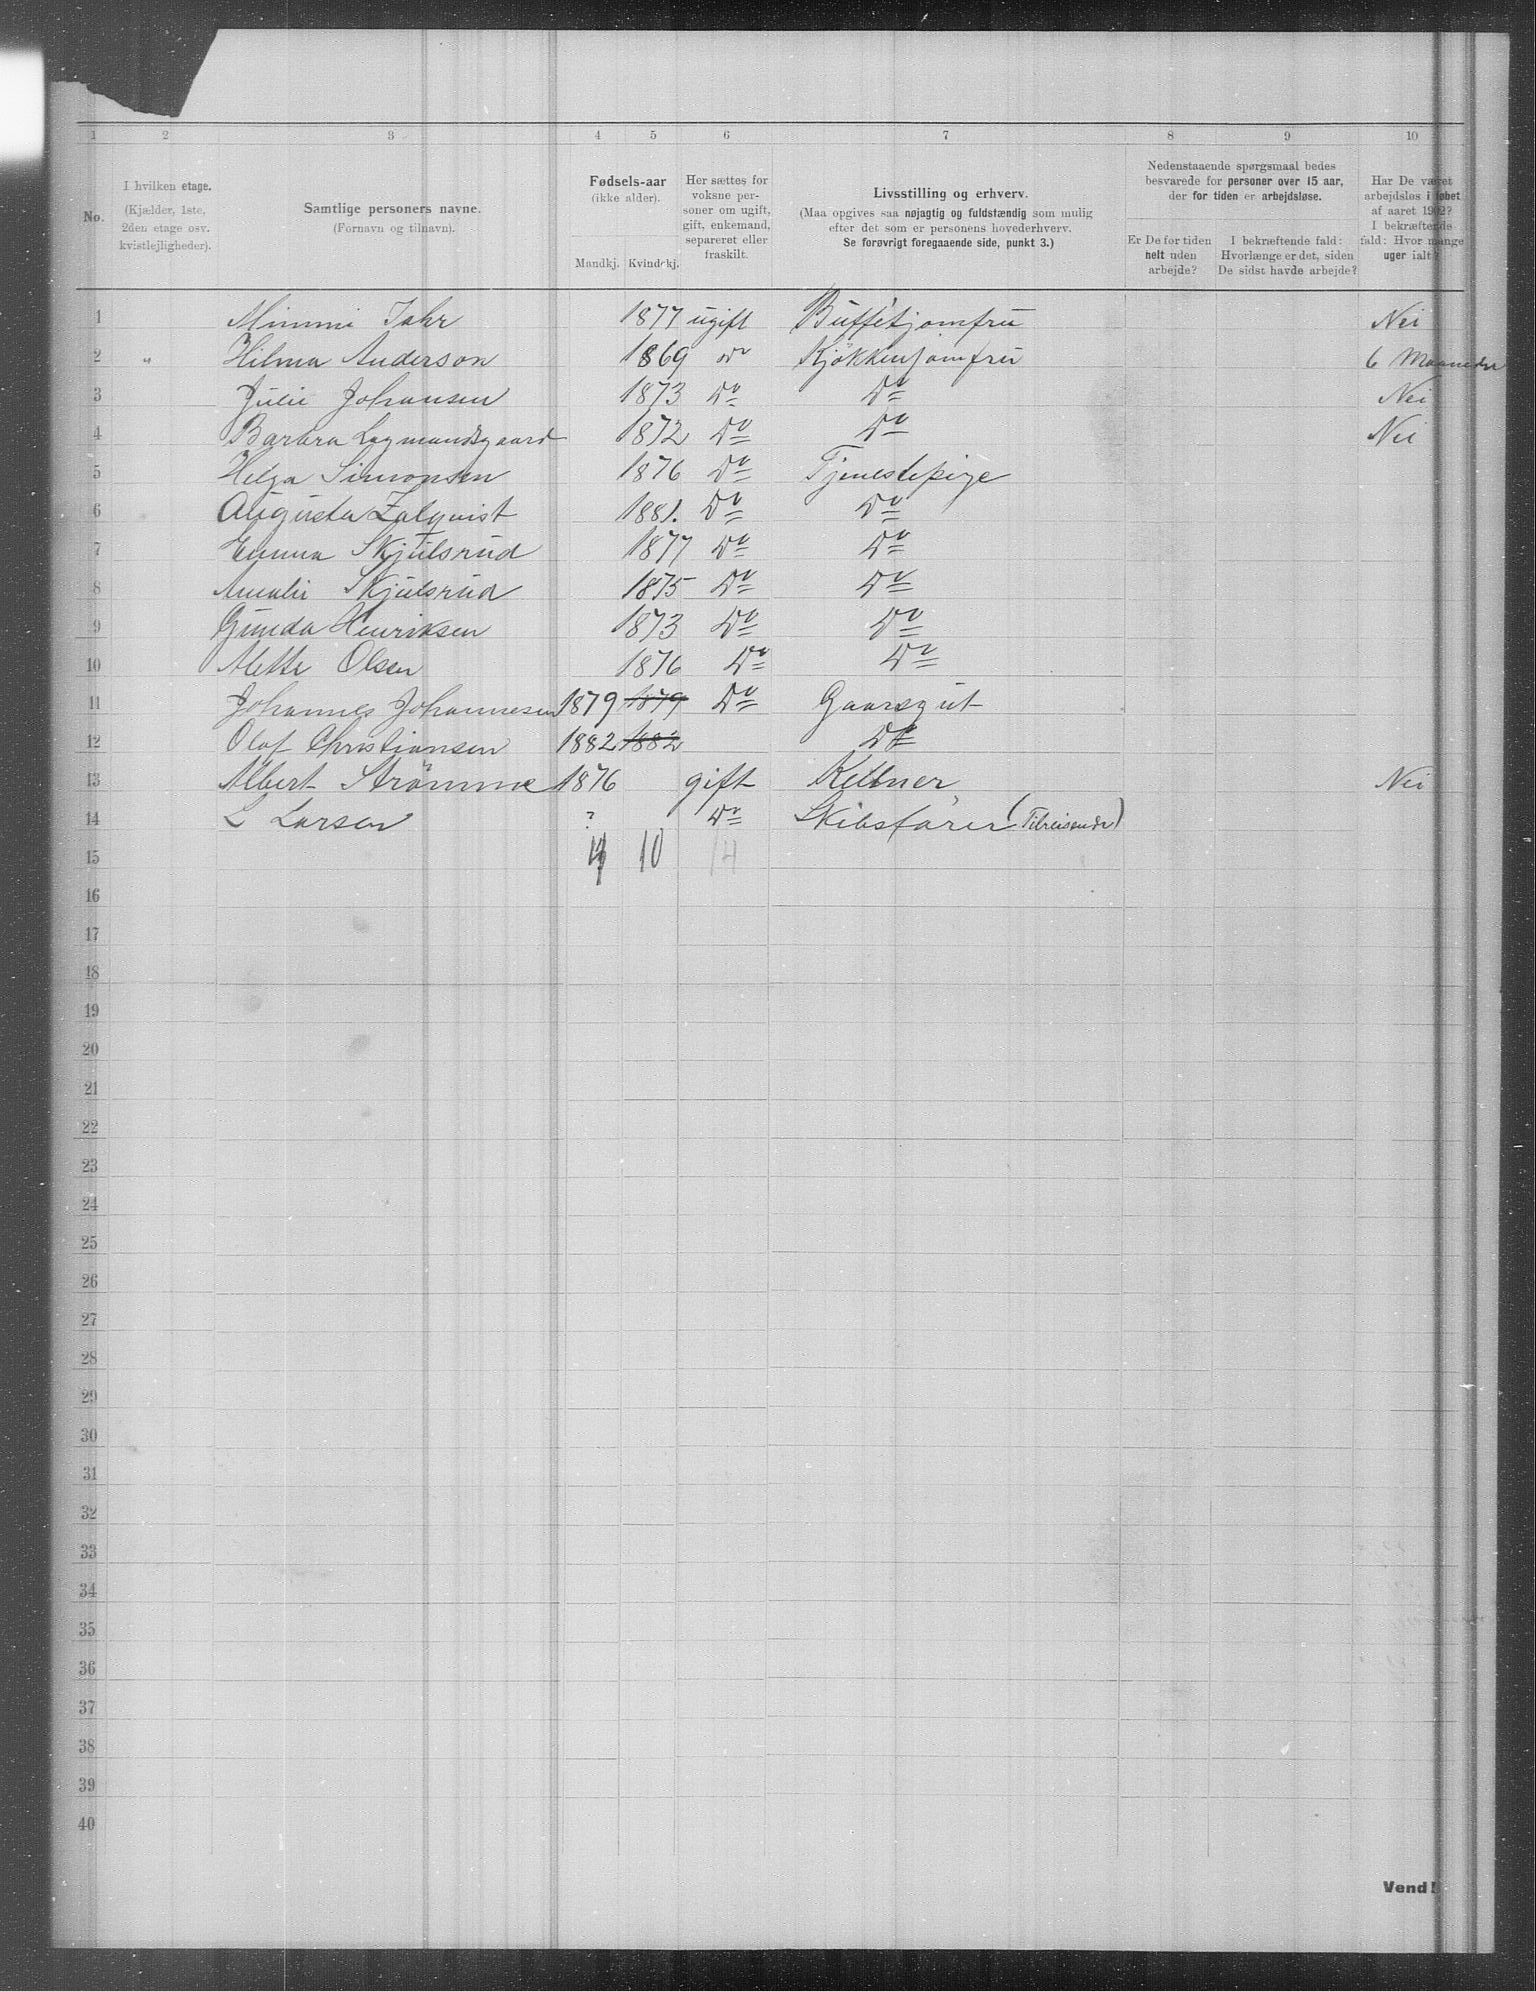 1 2 3 4 5 6 7 8 9 10
No.
I hvilken etage.
(Kjælder, 1ste,
2den etage osv.
kvistlejligheder).
Samtlige personers navne.
(Fornavn og tilnavn).
Fødsels-aar
(ikke alder).
Mandkj. Kvindekj.
Her sættes for
voksne per-
soner om ugift,
gift, enkemand,
separeret eller
fraskilt.
Livsstilling og erhverv.
(Maa opgives saa nøjagtig og fuldstændig som mulig
efter det som er personens hovederhverv.
Se forøvrigt foregaaende side, punkt 3.)
Nedenstaaende spørgsmaal bedes
besvarede for personer over 15 aar,
der for tiden er arbejdsløse.
Er De for tiden
helt uden
arbejde?
I bekræftende fald:
Hvorlænge er det, siden
De sidst havde arbejde?
Har De været
arbejdsløs i løbet
af aaret 1902?
I bekræftende
fald: Hvor mange
uger ialt?
1 Mimmi Jahr 1877 ugift Buffetjomfru Nei
2 " Hilma Anderson 1869 Do Kjøkkenjomfru 6 Maaneder
3 Julie Johansen 1873 Do Do Nei
4 Barbra Lagmandsgaard 1872 Do Do Nei
5 Helga Simonsen 1876 Do Tjenestepige
6 Augusta Zalquist 1881. Do Do
7 Emma Skjulsrud 1877 Do Do
8 Amalie Skjulsrud 1875 Do Do
9 Gunda Henriksen 1873 Do Do
10 Mette Olsen 1876 Do Do
11 Johannes Johannesen 1879 1879 Do Gaarsgut
12 Olaf Christiansen 1882 1882 Do
13 Albert Strömme 1876 gift Kellner Nei
14 L Larsen ? Do Skibsfører (Tilreisende)
15 4 10 14
16
17
18
19
20
21
22
23
24
25
26
27
28
29
30
31
32
33
34
35
36
37
38
39
40
Vend!